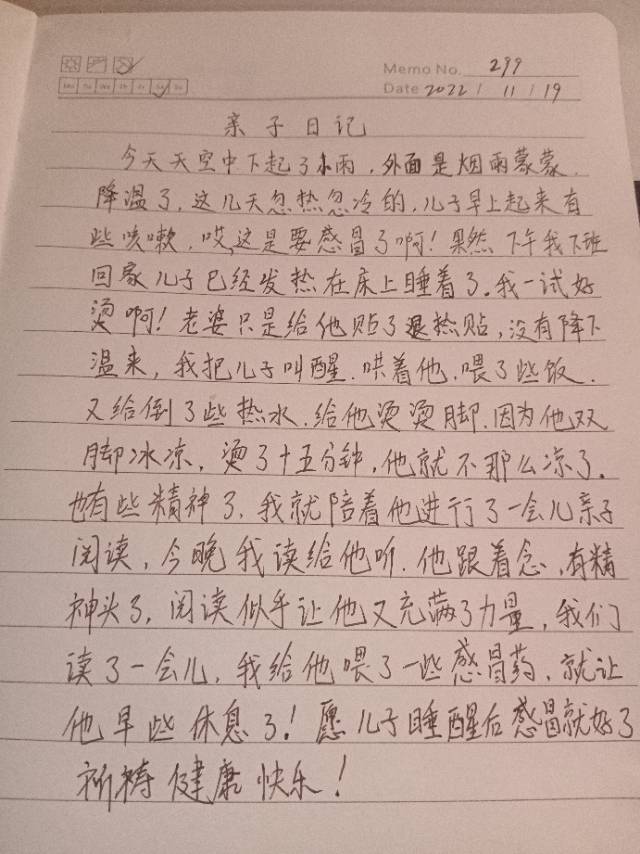 Memo No. 299
Mo Tu We Th Fr Sa Su
Date 2022 / 11 / 19
亲子日记
今天天空中下起了小雨,外面是烟雨蒙蒙.
降温了,这几天忽热忽冷的,儿子早上起来有
些咳嗽,哎,这是要感冒了啊!果然下午我下班
回家儿子已经发热在床上睡着了。我一试好
烫啊!老婆只是给他贴了退热贴,没有降下
温来,我把儿子叫醒.哄着他.喂了些饭.
又给倒了些热水.给他烫烫脚.因为他双
脚冰凉,烫了十五分钟,他就不那么凉了.
也有些精神了.我就陪着他进行了一会儿亲子
阅读,今晚我读给他听.他跟着念,有精
神头了,阅读似乎让他又充满了力量,我们
读了一会儿,我给他喂了一些感冒药,就让
他早些休息了!愿儿子睡醒后感冒就好了
祈祷健康快乐!